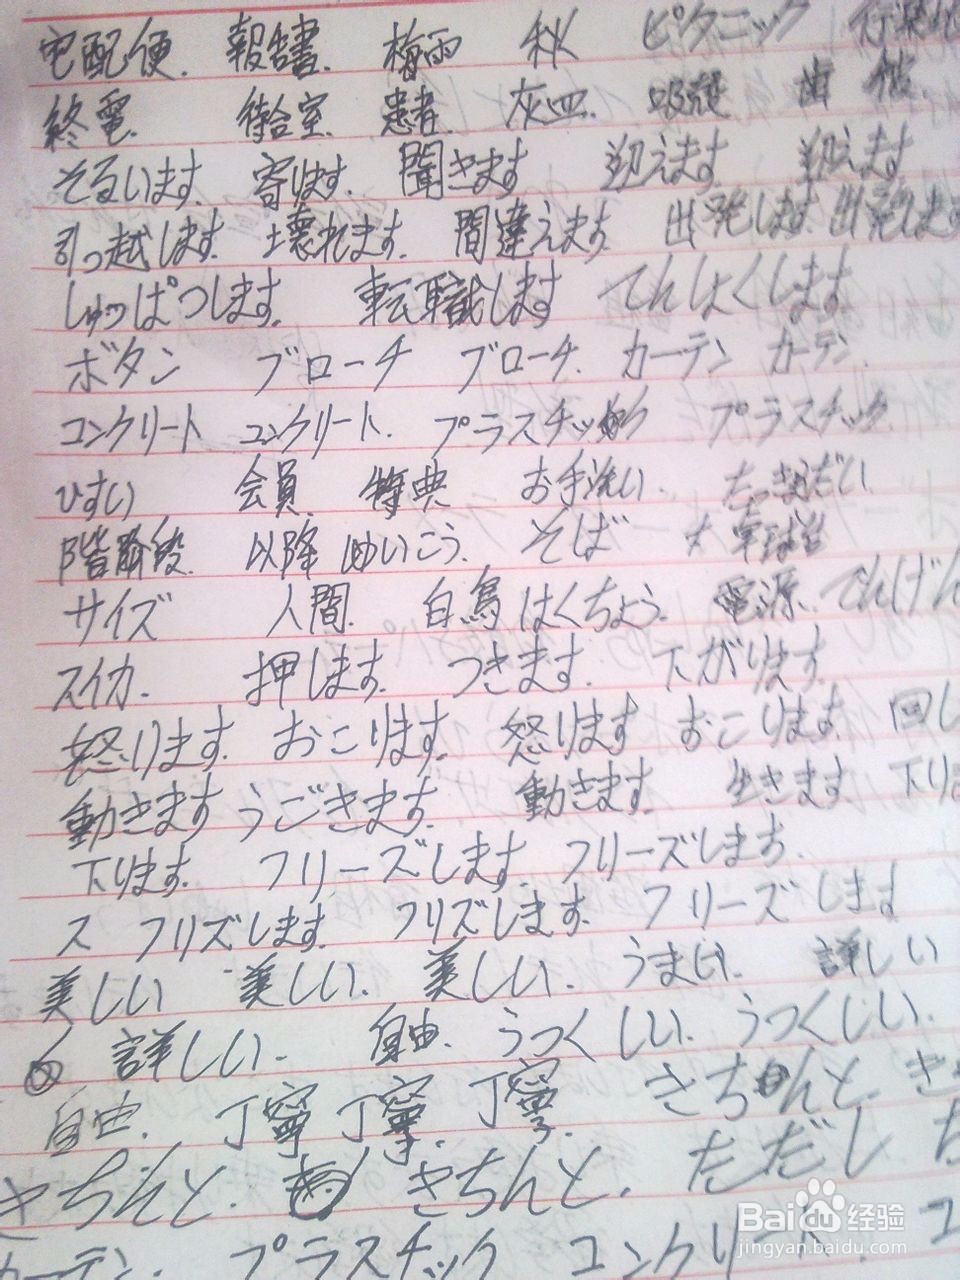 宅配便. 報告書. 梅雨 秋 ピクニック
終電. 待合室. 患者. 灰皿. 歯
そるいます. 寄ります. 聞きます 迎えます 迎えます
引っ越します. 壊れます. 間違えます. 出発します. 出発します
しゅっぱつします. 転職します てんしょくします
ボタン ブローチ ブローチ. カーテン カーテン.
コンクリート コンクリート. プラスチック プラスチック.
ひすい 会員. 特典 お手洗い.
以降 そば
サイズ 人間. 白鳥 はくちょう. 電源. でんげん
スイカ. 押します. つきます. 下がります.
怒ります. おこります. 怒ります おこります. 回し
動きます うごきます. 動きます. 生きます. 下りま
下ります. フリーズします フリーズします.
ス フリズします. フリズします. フリーズします
美しい 美しい. 美しい. うまい. 詳しい
詳しい. 自由. うつくしい. うつくしい.
自由. 丁寧 丁寧. 丁寧. きちんと. き
きちんと. きちんと. ただし た
カーテン. プラスチック コンクリート. コ
Baidu 经验
jingyan.baidu.com